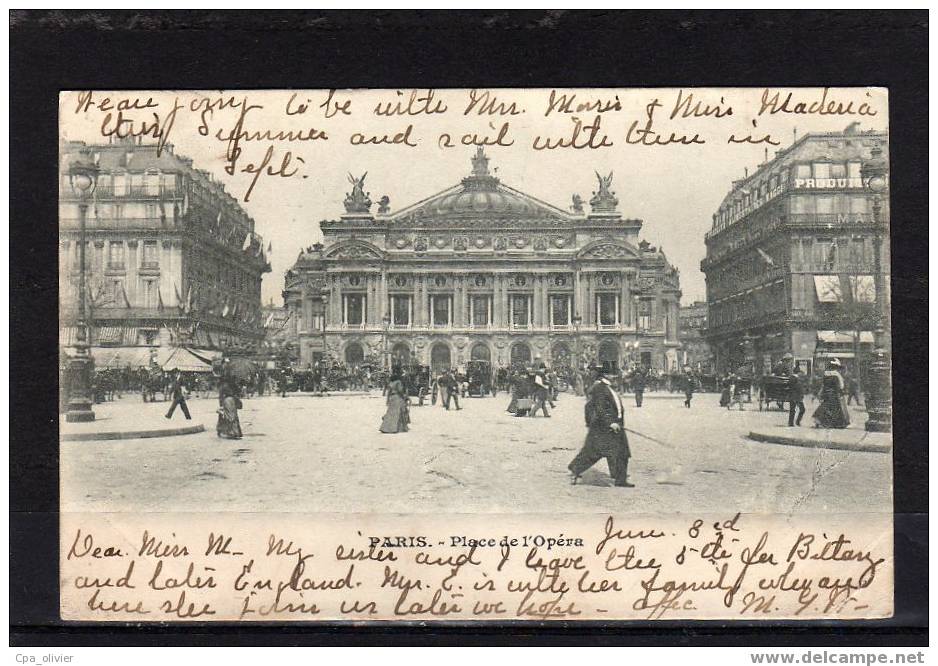 to be with Mrs. Morris & Miss Maderia
this Summer and sail with them in
Sept.
PRODUI
PARIS. - Place de l'Opéra
June 3rd
Dear Miss M- My sister and I leave the 5th for Brittany
and later England. Mrs. E. is with her family who are
here she joins us later we hope - affec
Cpa_olivier
http://www.delcampe.net